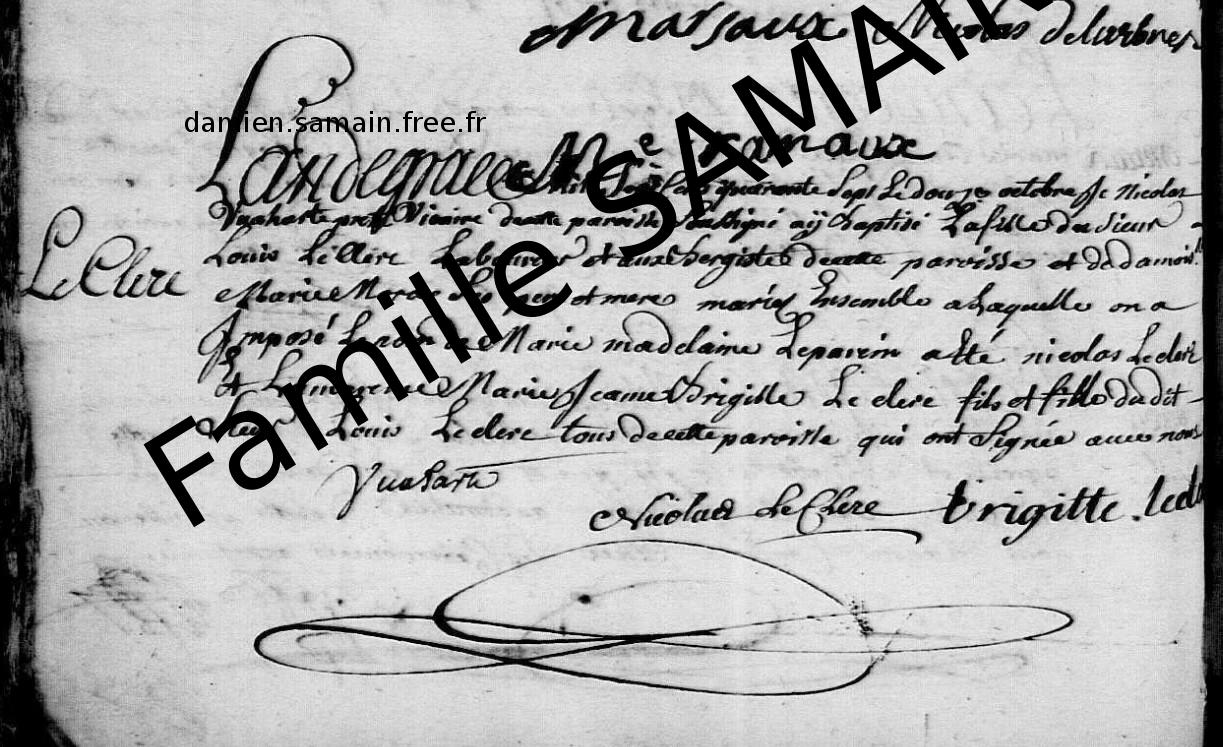 marsaux Nicolas
damien.samain.free.fr
Famille SAMAIN
Le Clerc
Lan de grace Mille Sept Cent quarante Sept Le douze octobre Je Nicolas
Vuaharte Vicaire de cette paroisse Soussigné aÿ Baptisé La fille du Sieur
Louis Le Clerc Laboureur et aux Bergiste de cette paroisse et de damois.lle
Marie et mere mariez Ensemble a Laquelle on a
Imposé Le nom de Marie madelaine Le parein a Eté nicolas Le clerc
Et La mareine Marie Jeanne Brigitte Le clerc fils et fille du dit
Sieur Louis Le clerc tous de cette paroisse qui ont Signée avec nous
Vuaharte
Nicolas Le Clere brigitte